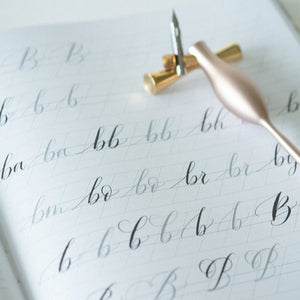 B B
b b b
ba ba bb bb bh
bm bo bo br br by
b b b b b b B
B B B B